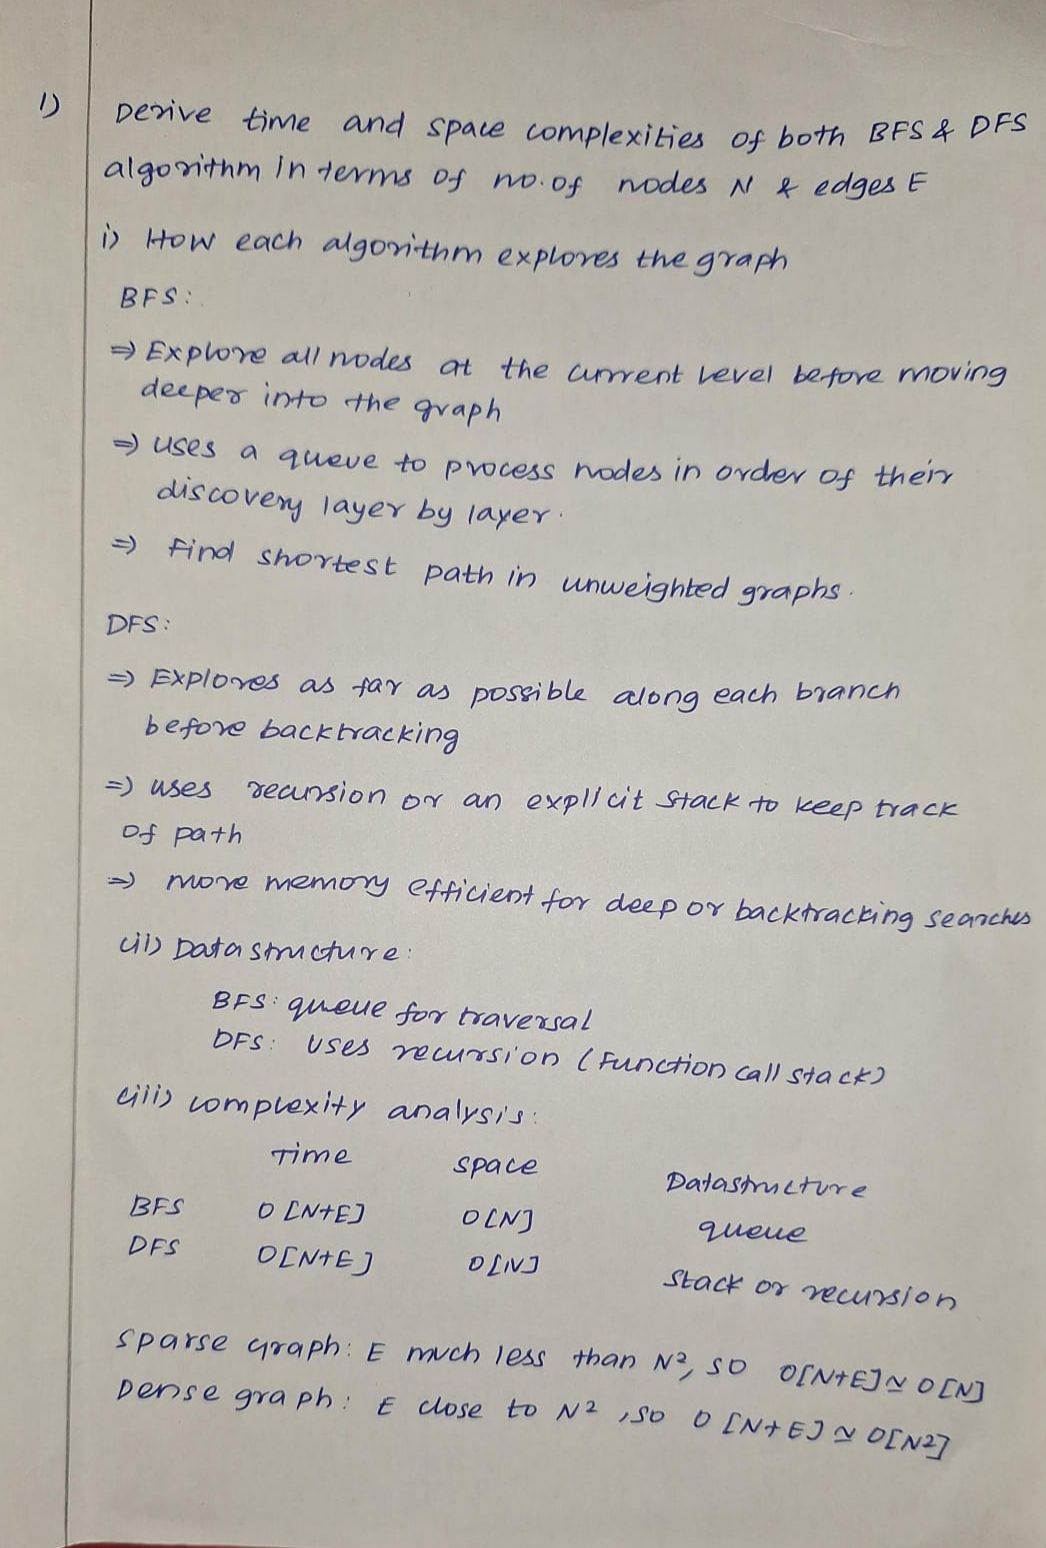 1) Derive time and space complexities of both BFS & DFS
algorithm in terms of no.of nodes N & edges E
i) How each algorithm explores the graph
BFS:
⇒ Explore all nodes at the current level before moving
deeper into the graph
⇒ uses a queue to process nodes in order of their
discovery layer by layer.
⇒ Find shortest path in unweighted graphs.
DFS:
⇒ Explores as far as possible along each branch
before backtracking
⇒ uses recursion or an explicit stack to keep track
of path
⇒ more memory efficient for deep or backtracking searches
(ii) Datastructure:
BFS: queue for traversal
DFS: uses recursion (Function call stack)
(iii) complexity analysis:
Time space Datastructure
BFS O[N+E] O[N] queue
DFS O[N+E] O[N] Stack or recursion
Sparse graph: E much less than N², so O[N+E] ≃ O[N]
Dense graph: E close to N², so O[N+E] ≃ O[N2]